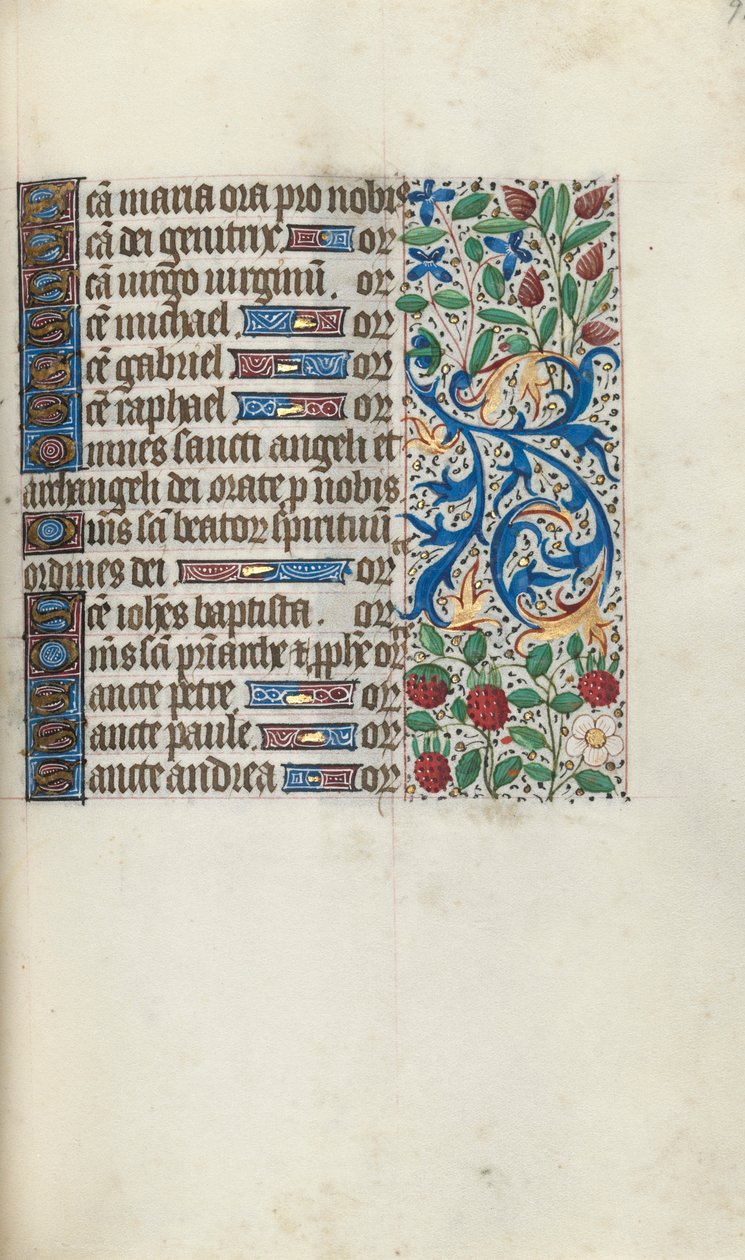 Scā maria ora pro nobis
Scā dei genitrix or
Scā virgo virginū. or
Scē michael or
Scē gabriel or
Scē raphael or
Omnes sancti angeli et
archangeli dei orate p nobis
Om̄s scī beatoꝝ spirituū
ordines dei or
Scē ioh̄es baptista. or
Om̄s scī pr̄iarche ⁊ pph̄e or
Sancte petre or
Sancte paule or
Sancte andrea or